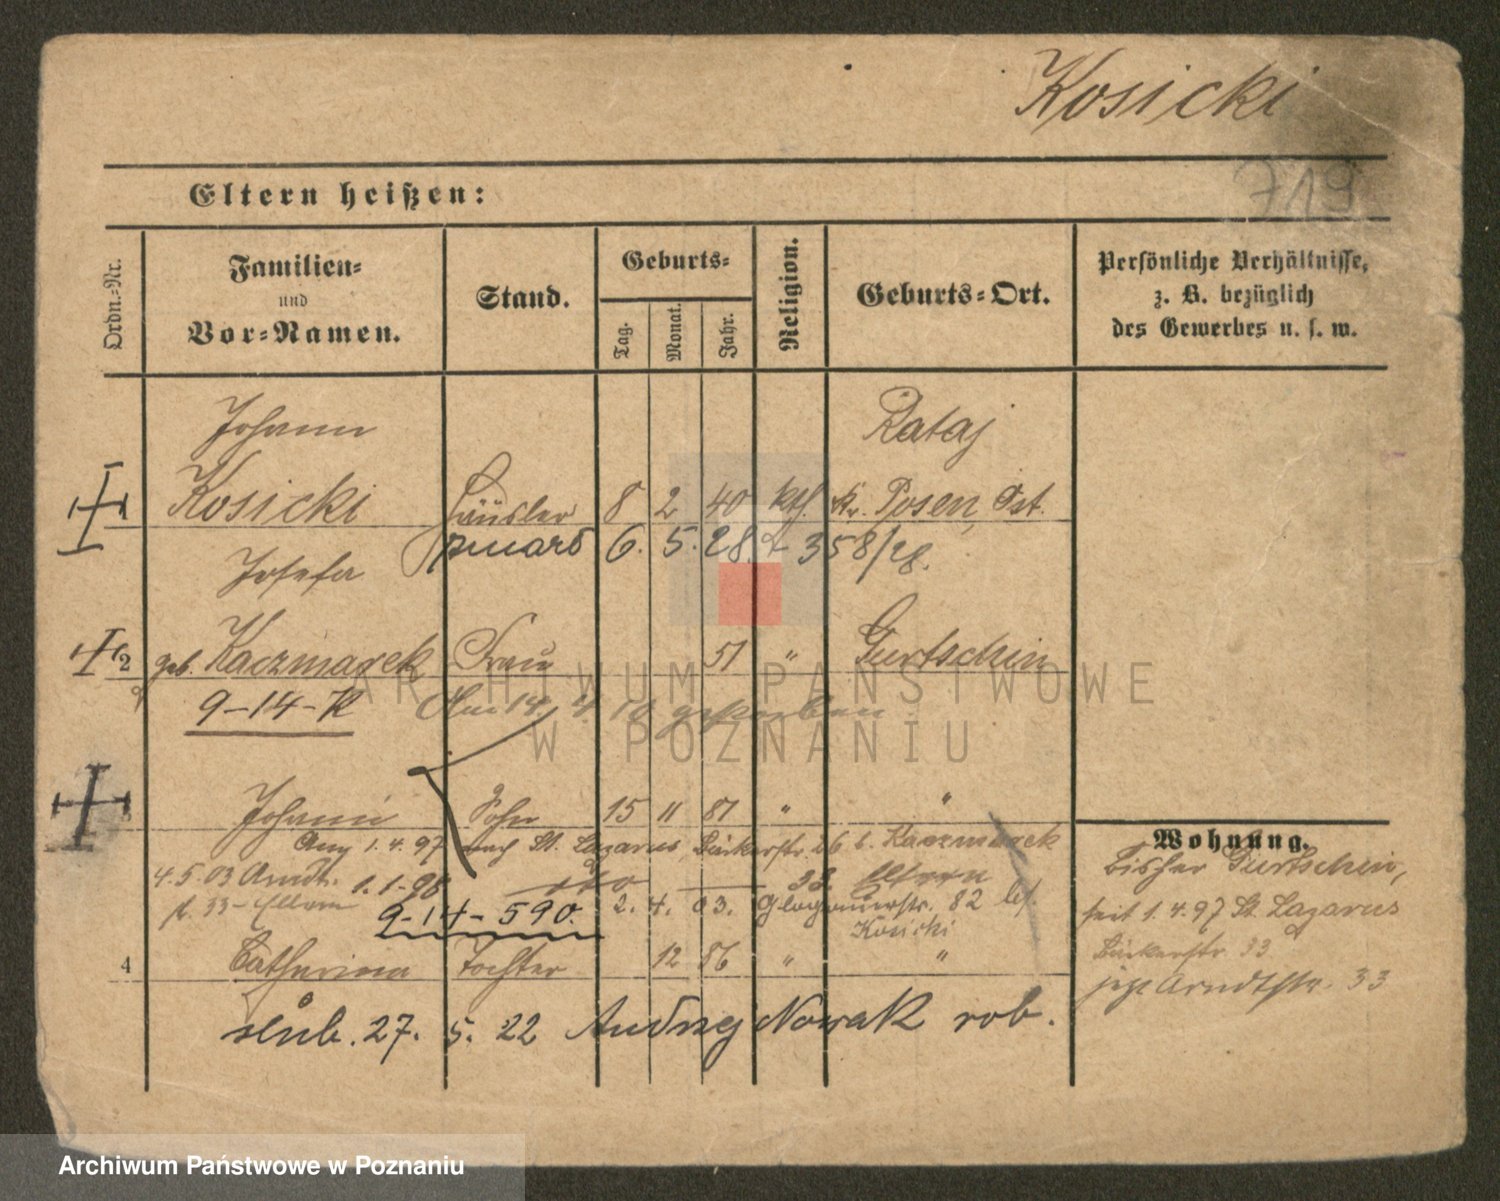 Kosicki
719
Eltern heißen:
Ordn.-Nr.
Familien-
und
Vor-Namen.
Stand.
Geburts-
Tag.
Monat.
Jahr.
Religion.
Geburts-Ort.
Persönliche Verhältnisse,
z. B. bezüglich
des Gewerbes u. s. w.
Johann Rataj
Kosicki Häusler 8 2 40 kth Kr. Posen, Ost.
zmarł 6. 5. 28. 358/28.
Josefa
2 geb. Kaczmarek Frau 51 " Gurtschin
9-14-K Am 14. 4. 19 gestorben
Johann Sohn 15 11 81 " "
1.4.97 nach St. Lazarus, Bäckerstr. 26 b. Kaczmarek
4.5.03 Arndtstr. 1.1.98 Eltern
33 - Eltern 9-14-590. 2. 4. 03. Glogauerstr. 82 bei
Kosicki
4 Catharina Tochter 12 86 " "
ślub. 27. 5. 22 Andrzej Nowak rob.
Wohnung.
bisher Gurtschin,
seit 1.4.97 St. Lazarus
Bäckerstr 33
jetzt Arndtstr. 33
ARCHIWUM PAŃSTWOWE
W POZNANIU
Archiwum Państwowe w Poznaniu